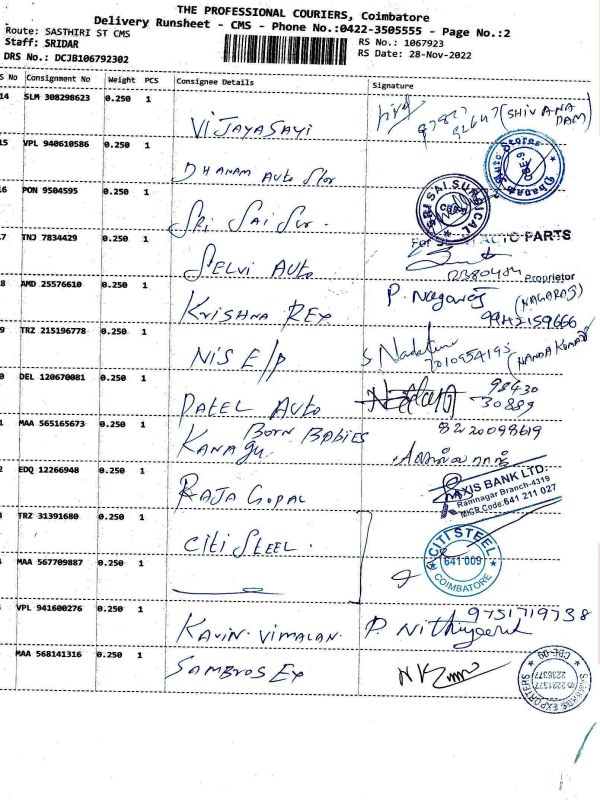 THE PROFESSIONAL COURIERS, Coimbatore
Delivery Runsheet - CMS - Phone No.:0422-3505555 - Page No.:2
Route: SASTHIRI ST CMS
Staff: SRIDAR
DRS No.: DCJB106792302
RS No.: 1067923
RS Date: 28-Nov-2022
S No Consignment No Weight PCS Consignee Details Signature
14 SLM 308298623 0.250 1 VIJAYASAYI (SHIVANADAM)
15 VPL 940610586 0.250 1 DHANAM Auto Stor
Dhanam Auto Stores
CBE-9
16 PON 9504595 0.250 1 SRI SAI Sur.
SRI SAI SURGICAL
7 TNJ 7834429 0.250 1 SELVI AUTO
For AUTO PARTS
Proprietor
8 AMD 25576610 0.250 1 KRISHNA REX P. Nagaraj (NAGARAJ)
9 TRZ 215196778 0.250 1 NIS E/P
0 DEL 120670081 0.250 1 PATEL AUTO 98430
30889
1 MAA 565165673 0.250 1 KANAGU. BORN BABIES 8220098619
2 EDQ 12266948 0.250 1 RAJA GOPAL
AXIS BANK LTD.
Ramnagar Branch-4319
MICR Code:641 211 027
3 TRZ 31391680 0.250 1 CITI STEEL.
CITI STEEL
641 009
COIMBATORE
MAA 567709887 0.250 1
VPL 941600276 0.250 1 KAVIN. VIMALAN. 9751719738
MAA 568141316 0.250 1 SAMBROS EX